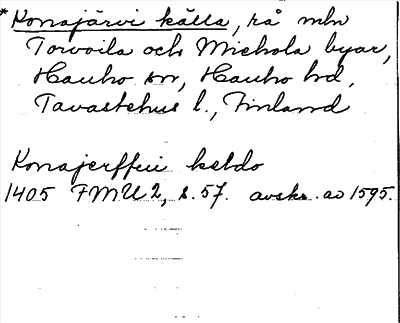 *Konajärvi källa, rå mln
Torvoila och Miehola byar,
Hauho sn, Hauho hd,
Tavastehus l., Finland
Konajerffui keldo
1405 FMU 2, s. 57. avskr. av 1595.